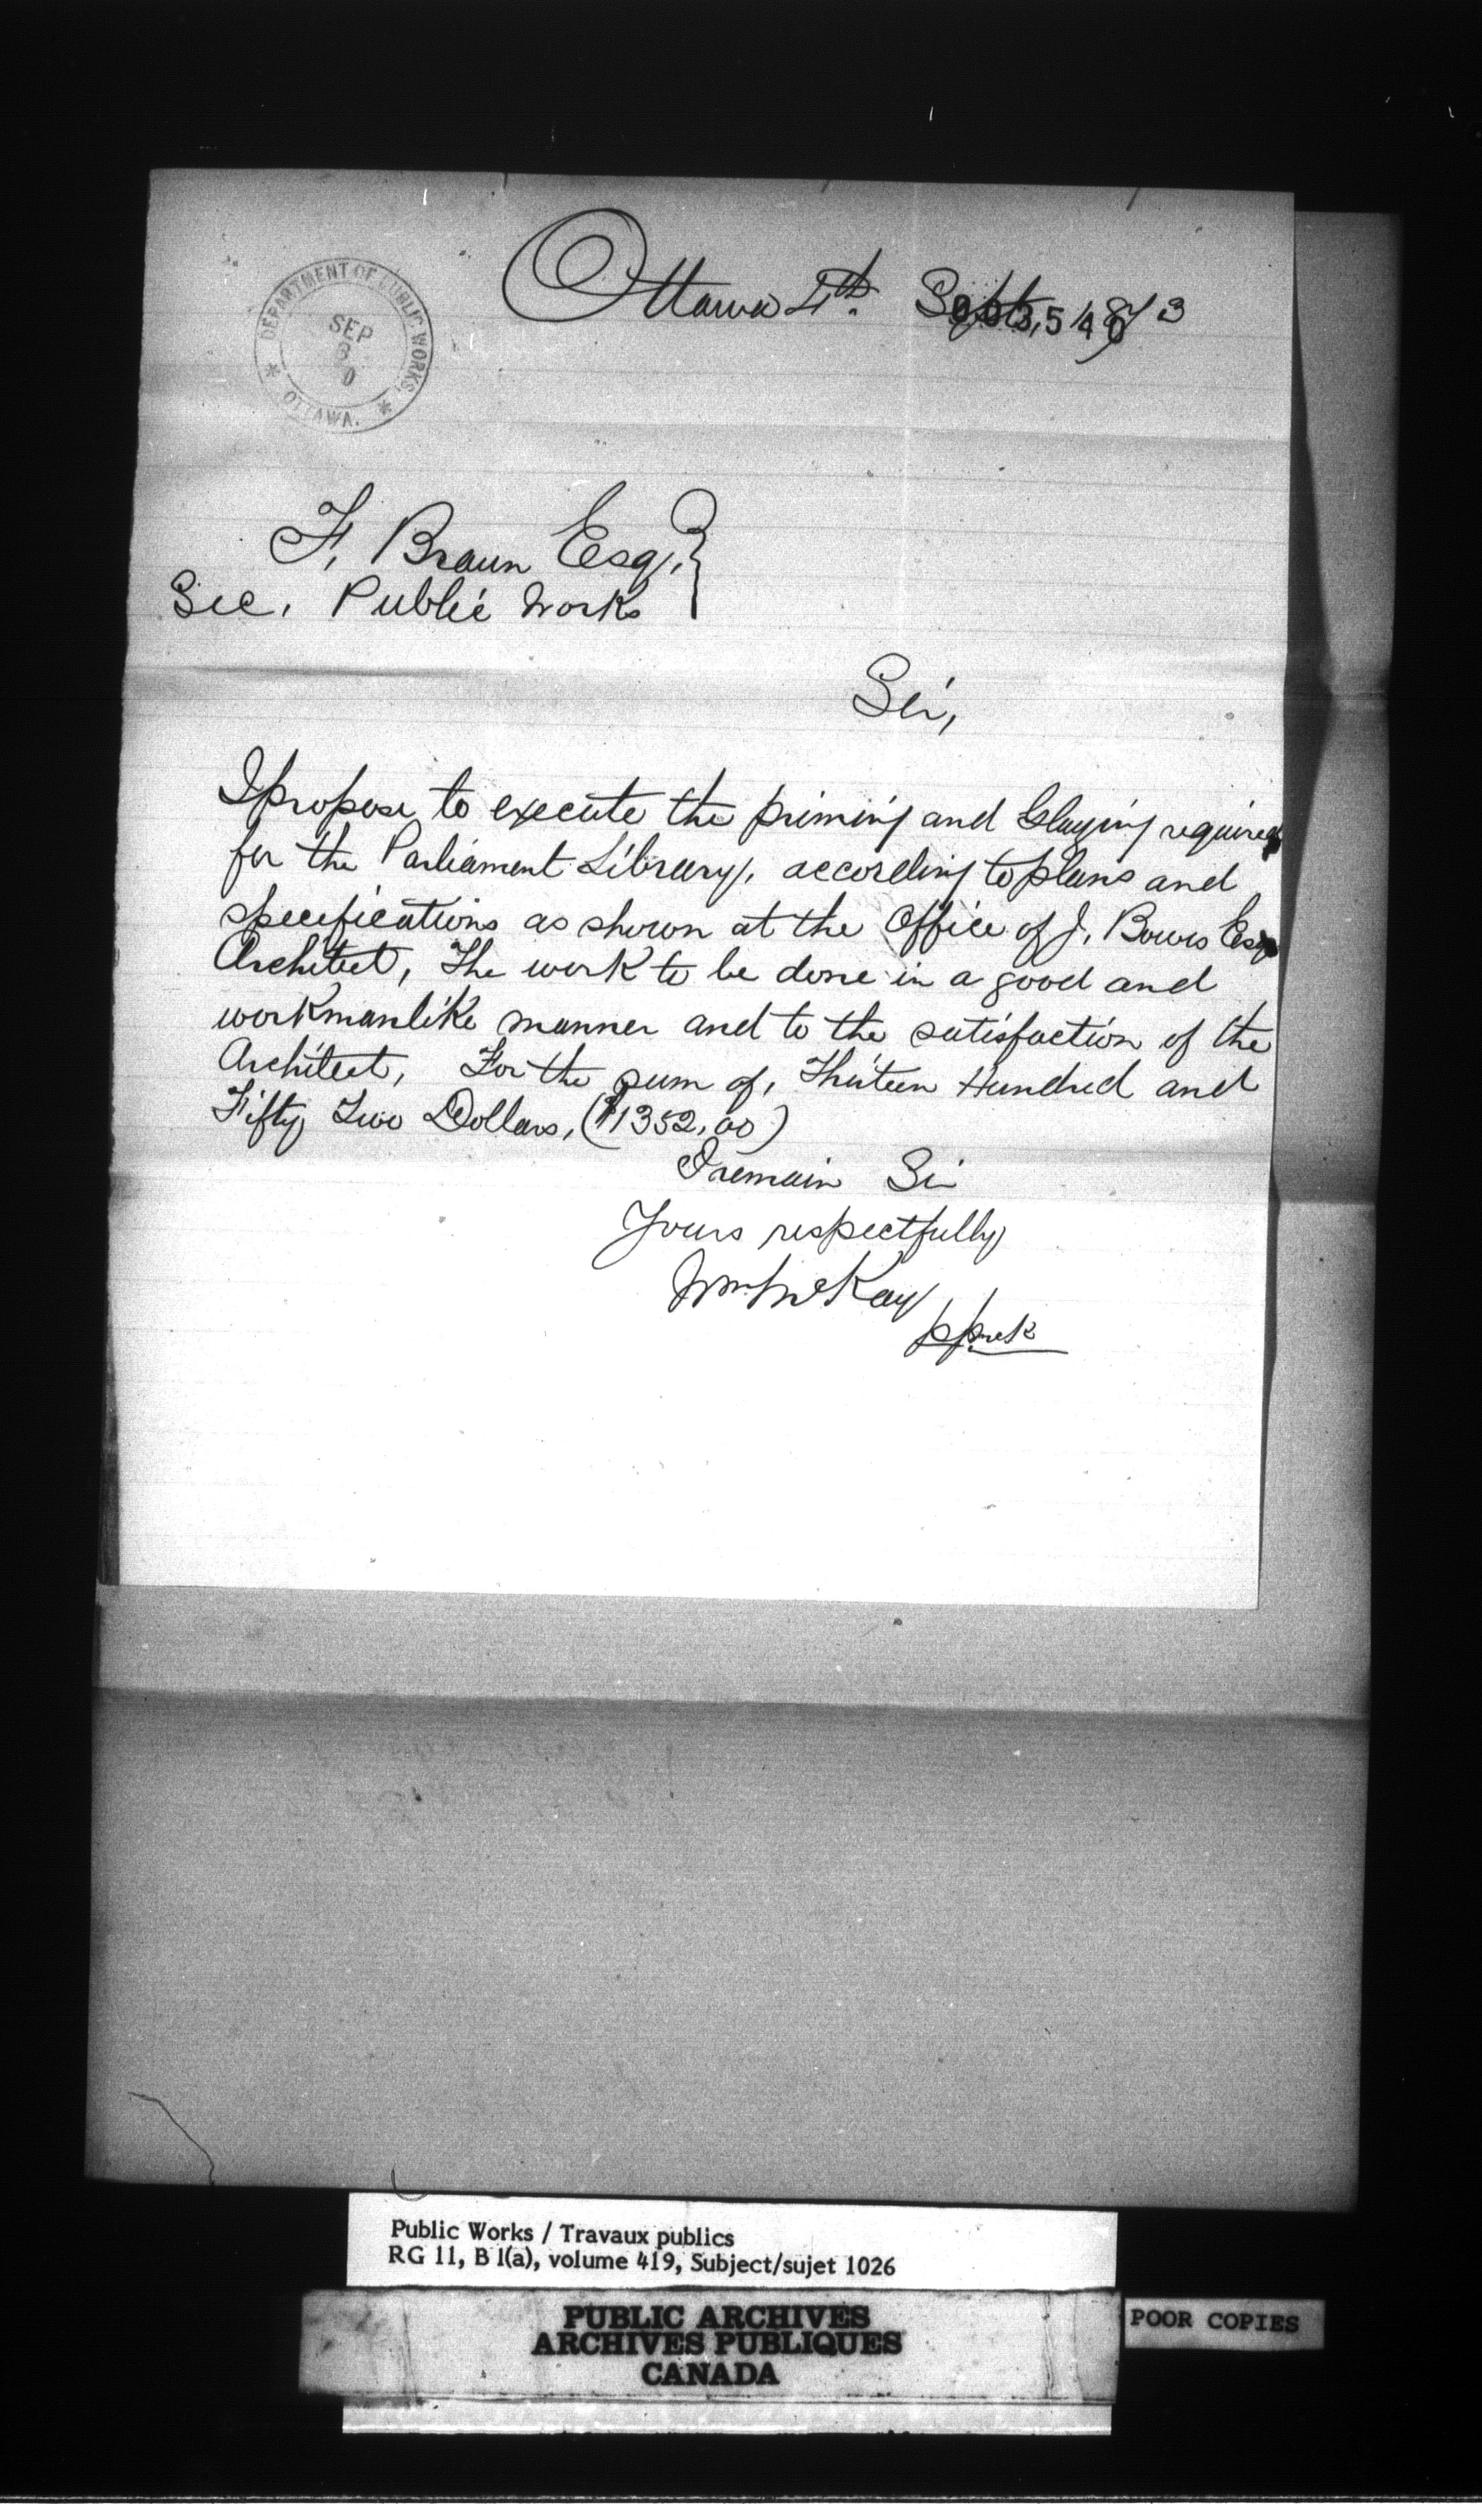 Ottawa 4th. Sept, 1873
003540
DEPARTMENT OF PUBLIC WORKS,
SEP
8
0
* OTTAWA. *
F. Braun Esq,.
Sec. Public Works
Sir,
I propose, to execute the priming and Glazing required
for the Parliament Library, according to plans and
specifications as shown at the Office of J. Bowes Esq
Architect, The work to be done in a good and
workmanlike manner and to the satisfaction of the
Architect, For the sum of, Thirteen Hundred and
Fifty Two Dollars, ($1352,00)
I remain Sir
Yours respectfully
Wm McKay
pp
Public Works / Travaux publics
RG 11, B 1(a), volume 419, Subject/sujet 1026
PUBLIC ARCHIVES
ARCHIVES PUBLIQUES
CANADA
POOR COPIES